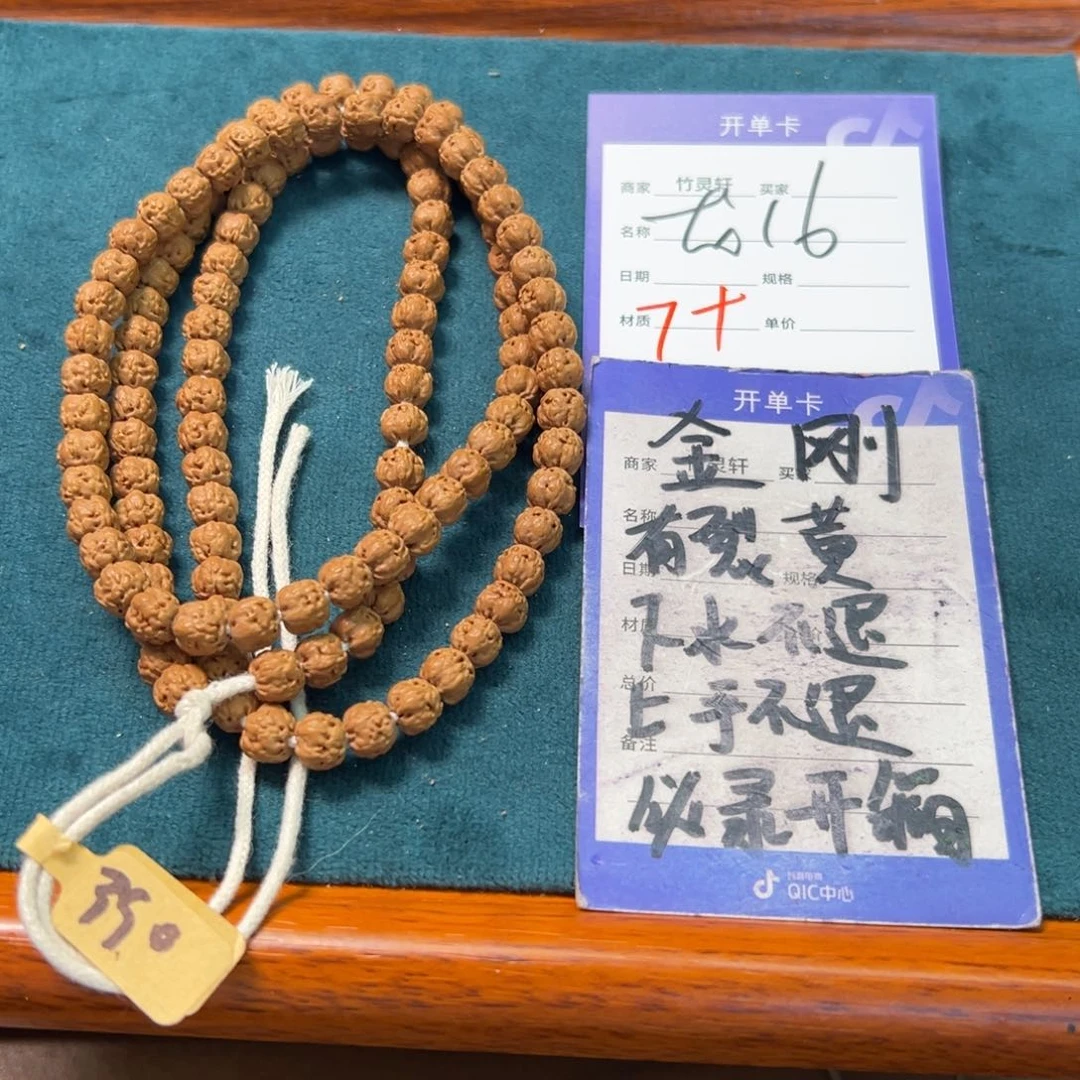 开单卡
商家 竹灵轩 买家
名称 16
日期 规格
材质 7十 单价
开单卡
商家 灵轩 买
金刚
名称
有裂 黄
日期 规格
材质
下水不退
总价
上手不退
备注
必录开箱
抖音电商
QIC中心
350